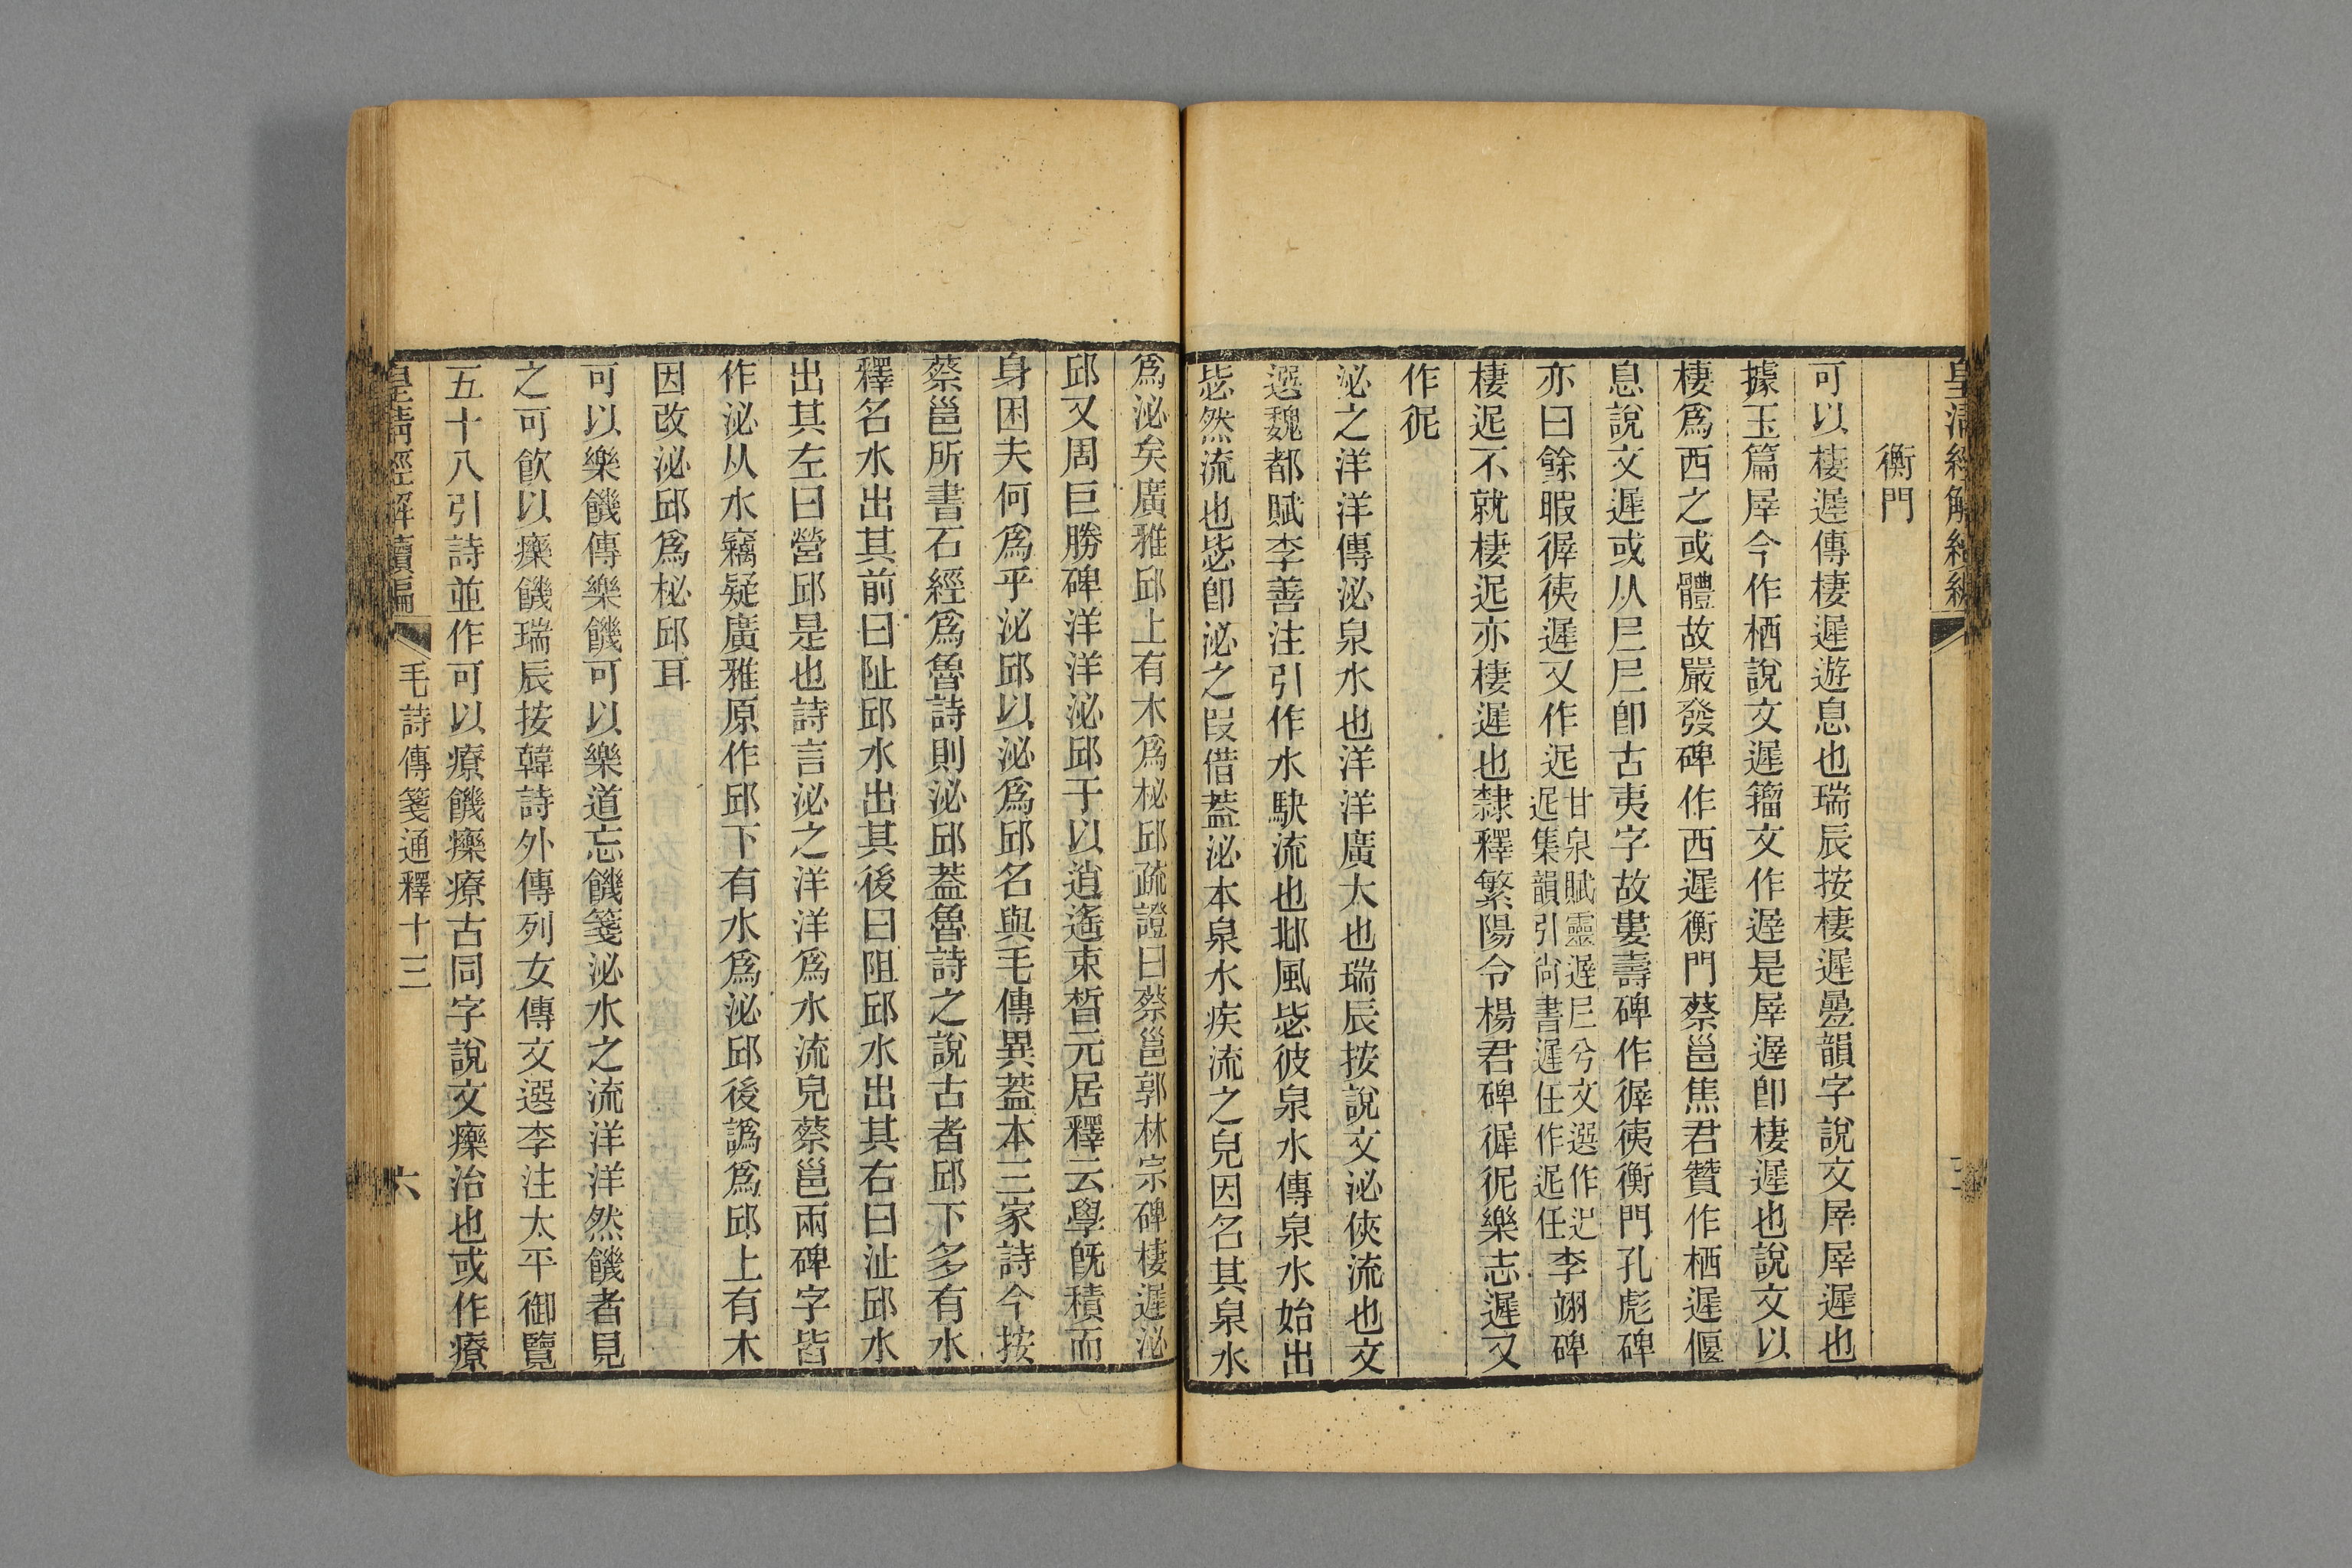 皇清經解續編
衡門
可以棲遲傳棲遲遊息也瑞辰按棲遲曡韻字說文屖屖遲也
據玉篇屖今作栖說文遲籀文作遟是屖遟卽棲遲也說文以
棲爲西之或體故嚴發碑作西遲衡門蔡邕焦君贊作栖遲偃
息說文遲或从𡰥𡰥卽古夷字故婁壽碑作徲徺衡門孔彪碑
亦曰餘暇徲徺遲又作迡甘泉賦靈遟𡰥兮文選作迉
迡集韻引尙書遲任作迡任李翊碑
棲迡不就棲迡亦棲遲也隸釋繁陽令楊君碑徲徔樂志遲又
作彽
泌之洋洋傳泌泉水也洋洋廣大也瑞辰按說文泌俠流也文
選魏都賦李善注引作水駃流也邶風毖彼泉水傳泉水始出
毖然流也毖卽泌之叚借葢泌本泉水疾流之皃因名其泉水
爲泌矣廣雅邱上有木爲柲邱疏證曰蔡邕郭林宗碑棲遲泌
邱又周巨勝碑洋洋泌邱于以逍遙束晳元居釋云學旣積而
身困夫何爲乎泌邱以泌爲邱名與毛傳異葢本三家詩今按
蔡邕所書石經爲魯詩則泌邱葢魯詩之說古者邱下多有水
釋名水出其前曰阯邱水出其後曰阻邱水出其右曰沚邱水
出其左曰營邱是也詩言泌之洋洋爲水流皃蔡邕兩碑字皆
作泌从水竊疑廣雅原作邱下有水爲泌邱後譌爲邱上有木
因改泌邱爲柲邱耳
可以樂饑傳樂饑可以樂道忘饑箋泌水之流洋洋然饑者見
之可飮以㿋饑瑞辰按韓詩外傳列女傳文選李注太平御覽
五十八引詩並作可以療饑㿋療古同字說文㿋治也或作療
皇淸經解續編
毛詩傳箋通釋十三
六